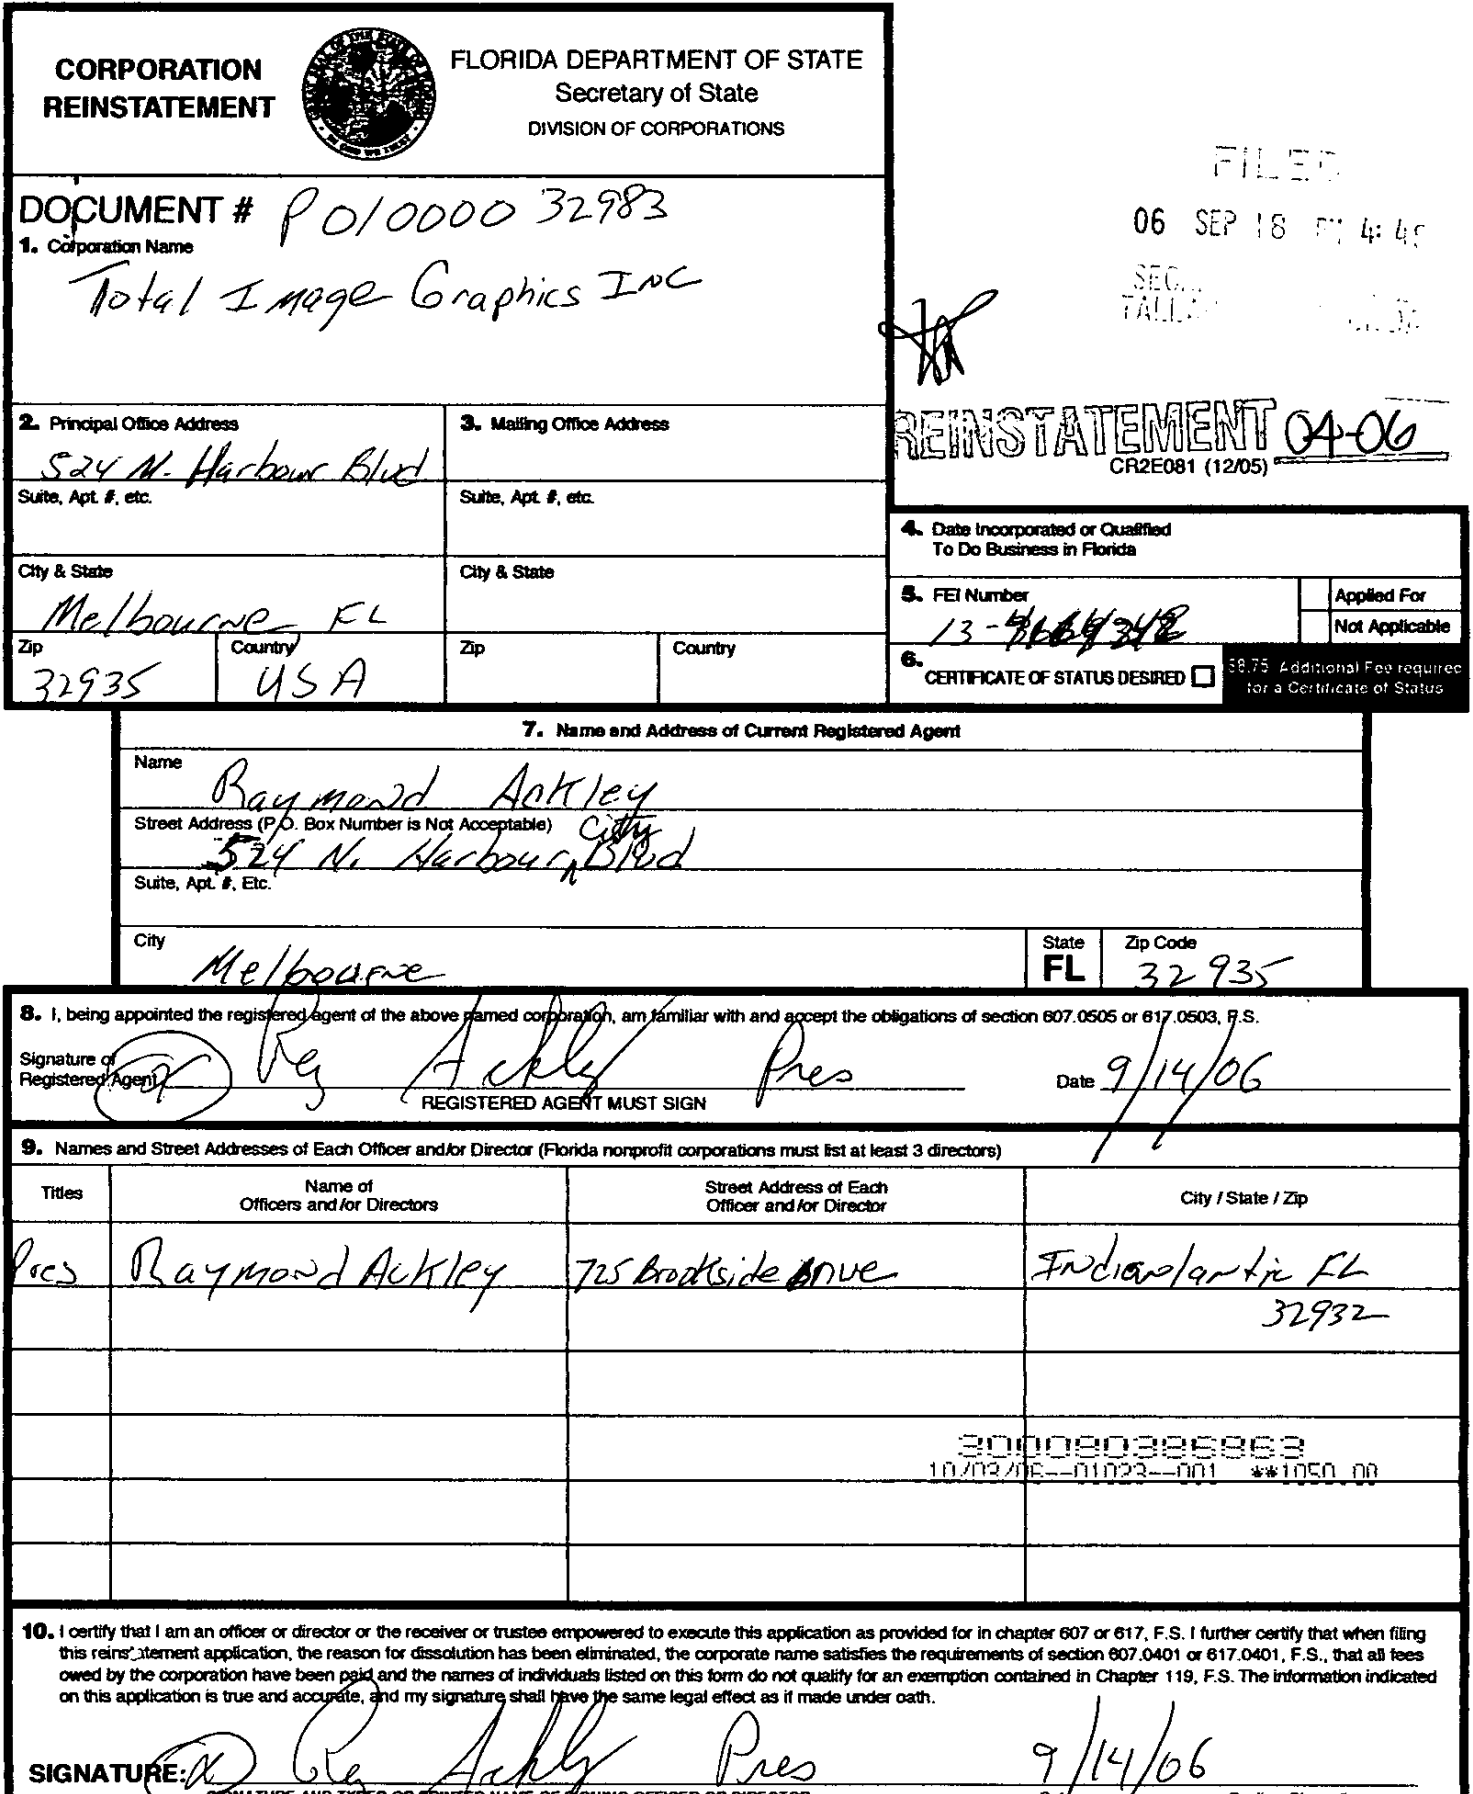 CORPORATION
REINSTATEMENT
FLORIDA DEPARTMENT OF STATE
Secretary of State
DIVISION OF CORPORATIONS
FILED
06 SEP 18 PM 4:
DOCUMENT # P01000032983
1. Corporation Name
Total Image Graphics INC
REINSTATEMENT 04-06
CR2E081 (12/05)
2. Principal Office Address
524 N. Harbour Blvd
Suite, Apt. #, etc.
City & State
Melbourne FL
Zip
32935
Country
USA
3. Mailing Office Address
Suite, Apt. #, etc.
City & State
Zip
Country
4. Date Incorporated or Qualified
To Do Business in Florida
5. FEI Number
13-
Applied For
Not Applicable
6.
CERTIFICATE OF STATUS DESIRED
$8.75 Additional Fee required
for a Certificate of Status
7. Name and Address of Current Registered Agent
Name
Raymond Ackley
Street Address (P.O. Box Number is Not Acceptable)
524 N. Harbour City Blvd
Suite, Apt. #, Etc.
City
Melbourne
State
FL
Zip Code
32935
8. I, being appointed the registered agent of the above named corporation, am familiar with and accept the obligations of section 607.0505 or 617.0503, F.S.
Signature of
Registered Agent Ray Ackley Pres
REGISTERED AGENT MUST SIGN
Date 9/14/06
9. Names and Street Addresses of Each Officer and/or Director (Florida nonprofit corporations must list at least 3 directors)
Titles
Name of
Officers and/or Directors
Street Address of Each
Officer and/or Director
City / State / Zip
Pres Raymond Ackley 725 Brookside Drive Indianlantic FL
32932
300080386863
10/03/06--01023--001 **1050.00
10. I certify that I am an officer or director or the receiver or trustee empowered to execute this application as provided for in chapter 607 or 617, F.S. I further certify that when filing
this reinstatement application, the reason for dissolution has been eliminated, the corporate name satisfies the requirements of section 607.0401 or 617.0401, F.S., that all fees
owed by the corporation have been paid and the names of individuals listed on this form do not qualify for an exemption contained in Chapter 119, F.S. The information indicated
on this application is true and accurate, and my signature shall have the same legal effect as if made under oath.
SIGNATURE: Ray Ackley Pres 9/14/06